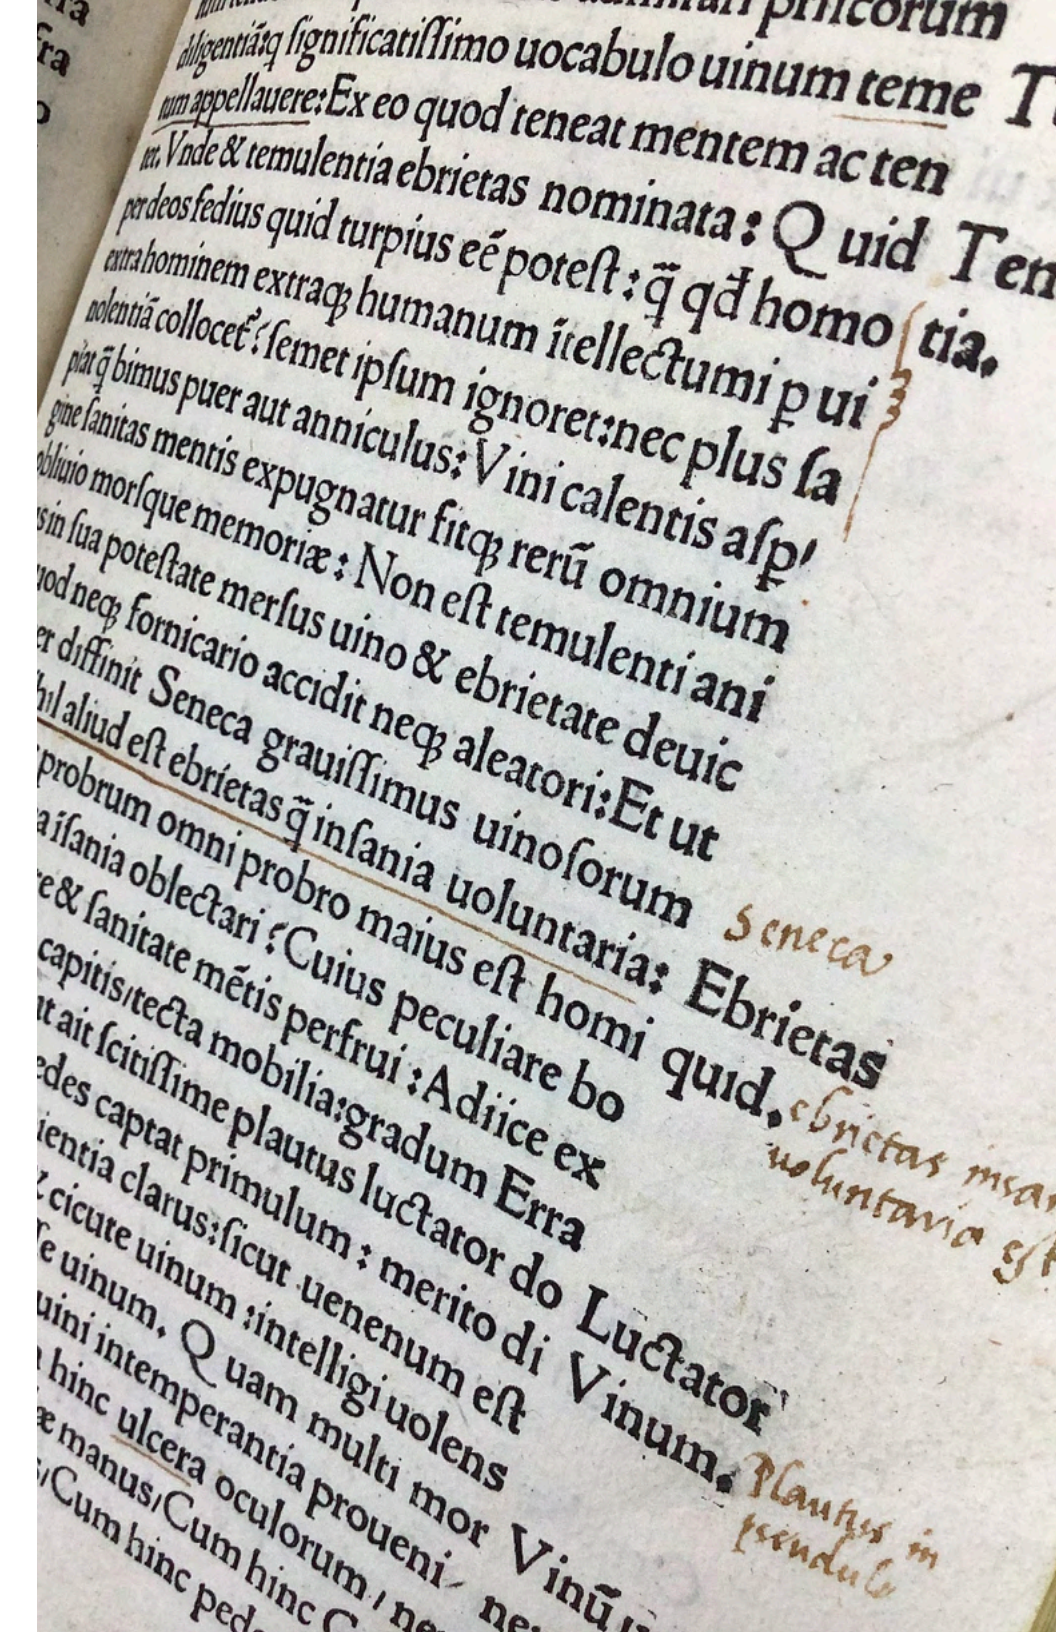 diligentiã: q̃ ſignificatiſſimo uocabulo uinum teme
tum appellauere: Ex eo quod teneat mentem ac ten
tet. Vnde & temulentia ebrietas nominata: Quid Tem
per deos fedius quid turpius eẽ poteſt: q̃ qđ homo tia.
extra hominem extraqꝫ humanum ĩtellectum i ꝑ ui
nolentiã collocet᷑? ſemet ipſum ignoret: nec plus ſa
piat q̃ bimus puer aut anniculus: Vini calentis aſꝑ
gine ſanitas mentis expugnatur fitqꝫ rerũ omnium
obliuio morſque memoriæ: Non eſt temulenti ani
in ſua poteſtate merſus uino & ebrietate deuic
neqꝫ fornicario accidit neqꝫ aleatori: Et ut
diffinit Seneca grauiſſimus uinoſorum
Seneca
aliud eſt ebrietas q̃ inſania uoluntaria: Ebrietas
probrum omni probro maius eſt homi quid.
ebrietas
uoluntaria eſt
iſania oblectari? Cuius peculiare bo
& ſanitate mẽtis perfrui: Adiice ex
capitis/tecta mobilia: gradum Erra
ut ait ſcitiſſime plautus luctator do Luctator
captat primulum: merito di Vinum.
Plautus in
pseudulo
clarus: ſicut uenenum eſt
cicute uinum: intelligi uolens
uinum. Quam multi mor Vinũ
uini intemperantia proueni
hinc ulcera oculorum/
manus/Cum hinc
Cum hinc